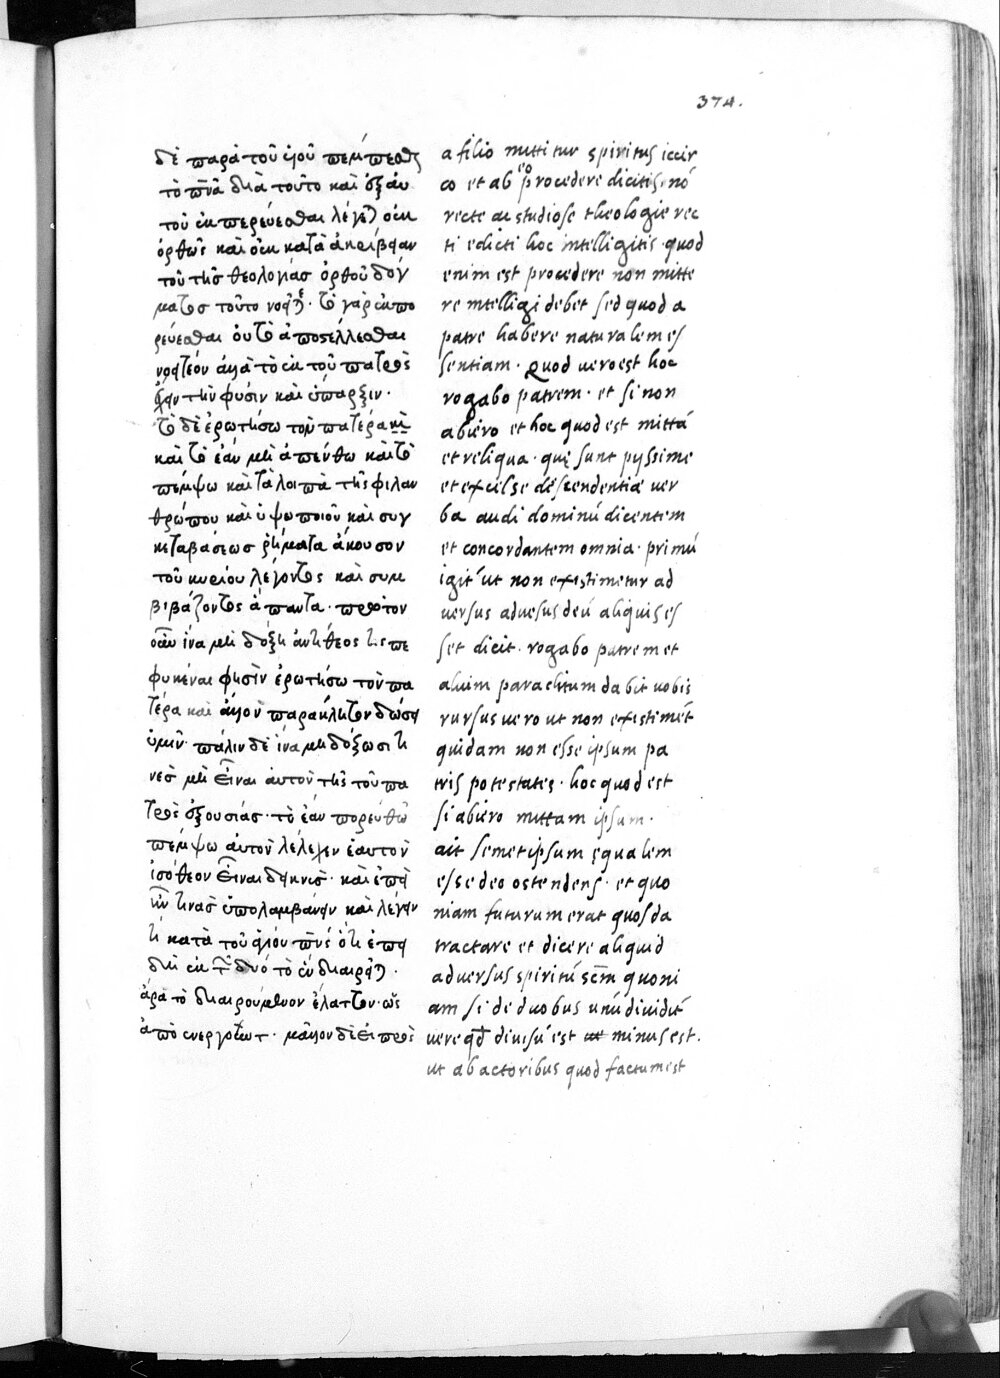 374.
δὲ παρὰ τοῦ υἱοῦ πέμπεσθαι
τὸ πνα διὰ τοῦτο καὶ ἐξ αυ
τοῦ ἐκπορεύεσθαι λέγετε οὐκ
ὀρθῶς καὶ οὐκ κατὰ ἀκρίβειαν
τοῦ τῆς θεολογίας ὀρθοῦ δόγ
ματος τοῦτο νοεῖτε. τὸ γὰρ ἐκπο
ρεύεσθαι οὐ τὸ ἀποστέλλεσθαι
νοητέον ἀλλὰ τὸ ἐκ τοῦ πατρὸς
ἔχειν τὴν φύσιν καὶ ὕπαρξιν.
τὸ δὲ ἐρωτήσω τὸν πατέρα
καὶ τὸ ἐάν μὴ ἀπένθω καὶ τὸ
πέμψω καὶ τὰ λοιπὰ τῆς φιλαν
θρώπου καὶ ὑψωποιοῦ καὶ συγ
κεταβάσεως ῥήματα ἄκουσον
τοῦ κυρίου λέγοντος καὶ συμ
βιβάζοντος ἅπαντα. πρῶτον
οὖν ἵνα μὴ δόξη ἀντίθεός τις πε
φυκέναι φησὶν ἐρωτήσω τὸν πα
τέρα καὶ ἄλλον παράκλητον δώσει
ὑμῖν. πάλιν δὲ ἵνα μὴ δόξωσι τι
νὲσ μὴ εἶναι αὐτὸν τῆς τοῦ πα
τρὸς ἐξουσίας. τὸ ἐάν πορευθῶ
πέμψω αὐτὸν λέλεχεν ἑαυτὸν
ἰσόθεον εἶναι δεικνὺς. καὶ ἐπεὶ
ἦν τινὰς ὑπολαμβάνειν καὶ λέγειν
τι κατὰ τοῦ ἁγίου πνς ὅτι ἐπει
δὴ ἐκ τῶ δυό τὸ ἓν διαιρεῖται.
ἄρα τὸ διαιρούμενον ἔλαττον. ὡς
ἀπὸ ενεργοῦντ. μᾶλλον δὲ εἰ πρὸς
a filio mittitur spiritus iccir
co et ab eo procedere dicitis, nō
recte ac studiose theologie rec
ti edicti hoc intelligitis. quod
enim est procedere non mitte
re intelligi debet sed quod a
patre habere naturalem es
sentiam. Quod vero est hoc
rogabo patrem. et si non
abiero et hoc quod est mittā
et reliqua. quę sunt pyssime
et excelse descendentiae ver
ba audi dominū dicentem
et concordantem omnia. primū
igit' ut non existimetur ad
versus advesus deū aliquis es
set dicit. rogabo patrem et
alium paraclitum dabit vobis
rursus vero ut non existimēt
quidam non esse ipsum pa
tris potestates. hoc quod est
si abiero mittam ipsum.
ait semetipsum ęqualem
esse deo ostendens. et quo
niam futurum erat quosda
tractare et dicere aliquid
adversus spiritū scm quoni
am si de duobus unū dividit'
vere qd divisū est ut minus est.
ut ab actoribus quod factum est